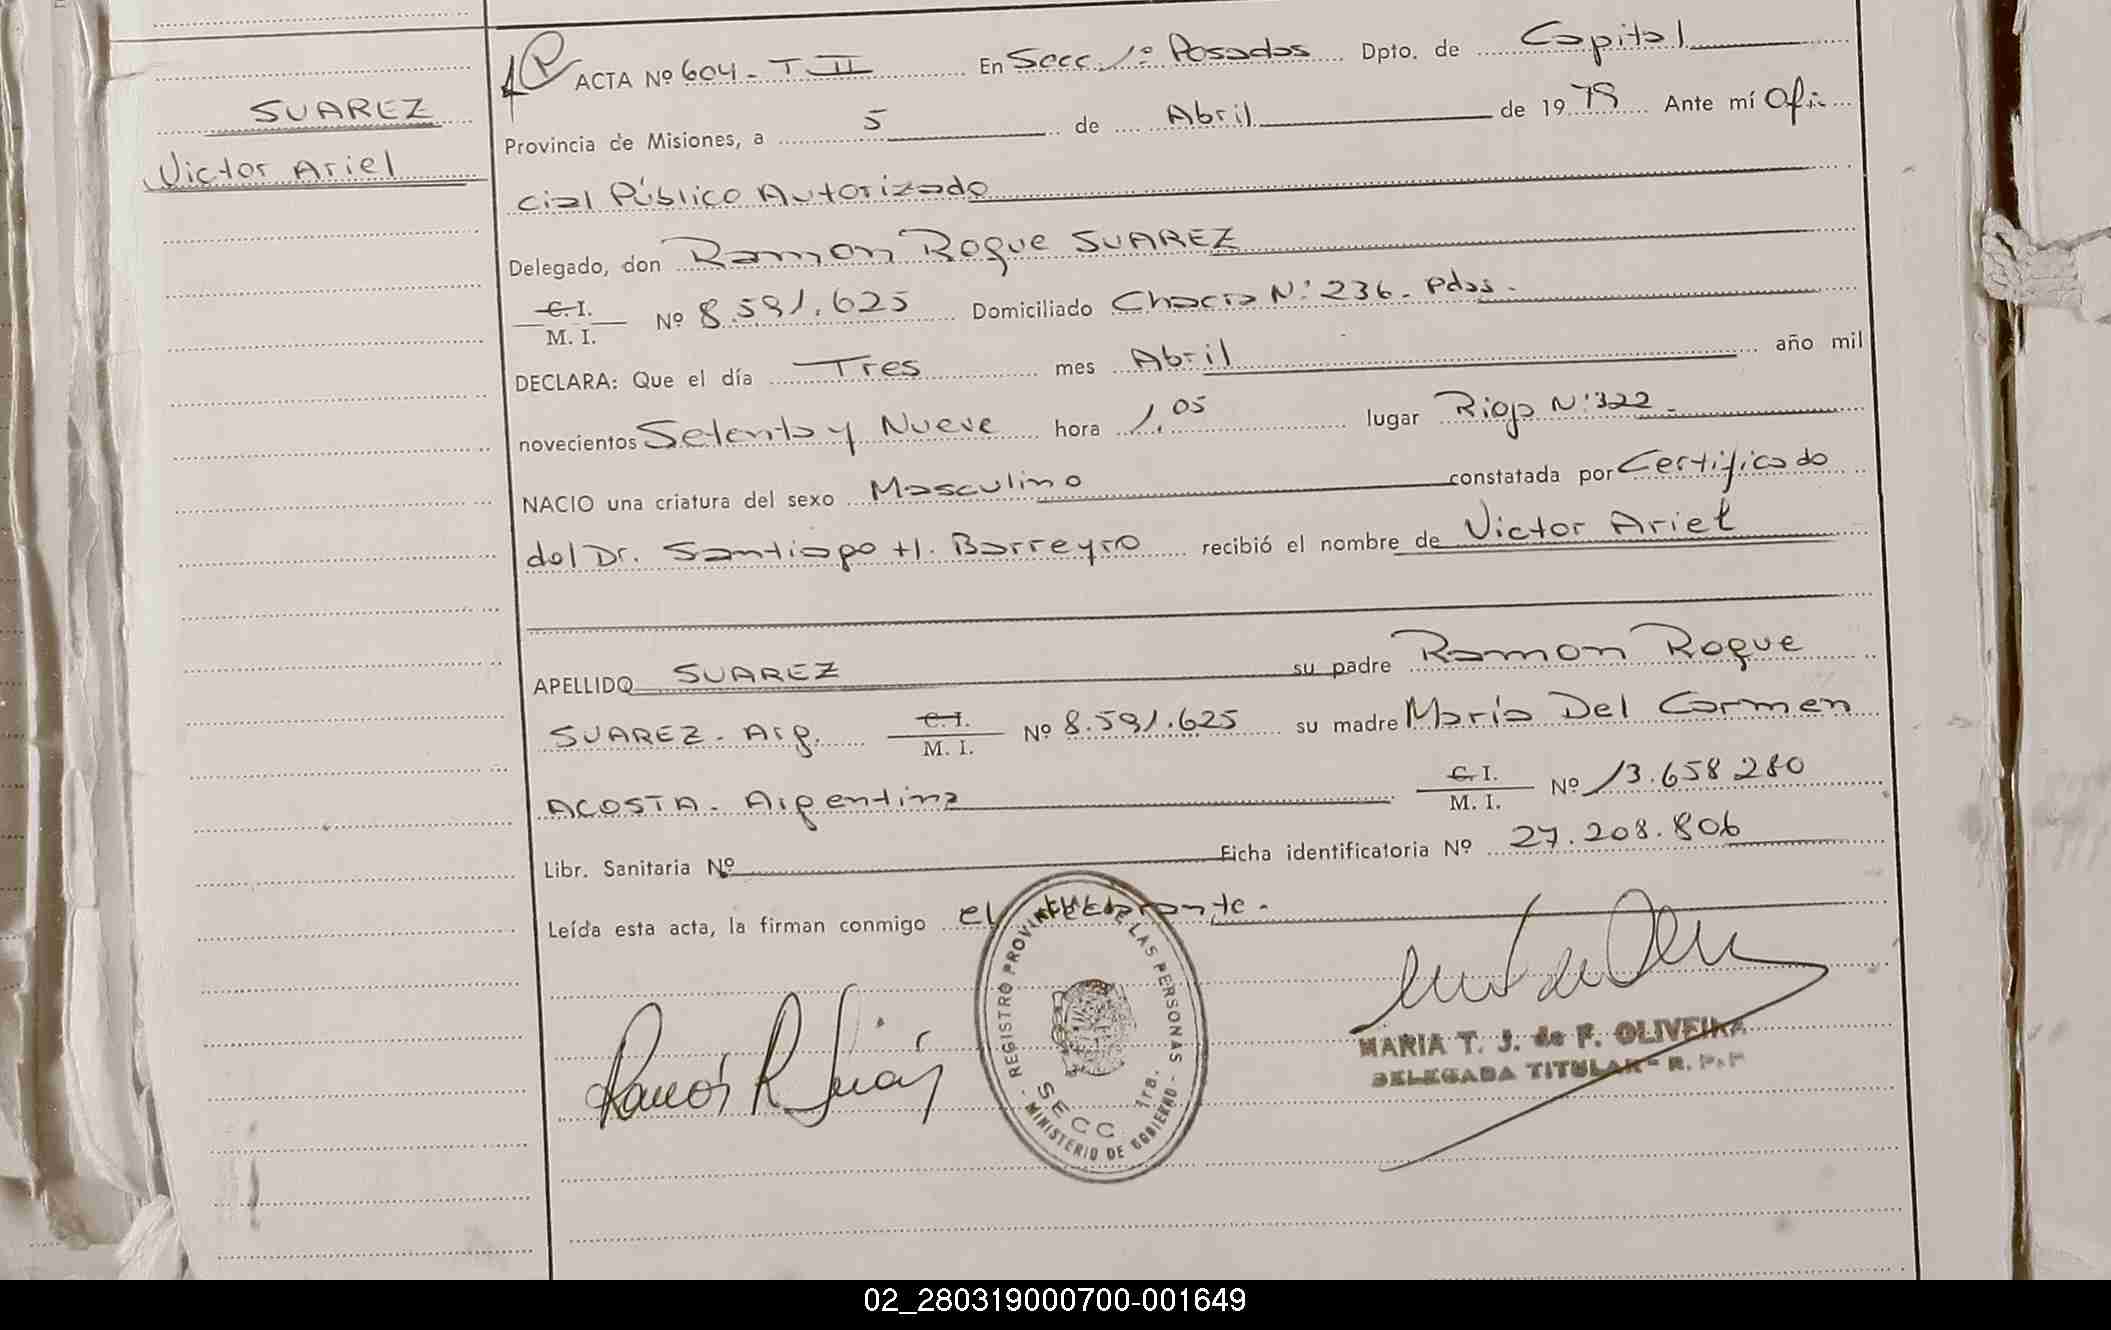 SUAREZ
Victor Ariel
ACTA Nº 604 - T II En Secc. 1º Posadas Dpto. de Capital
Provincia de Misiones, a 5 de Abril de 1979 Ante mí Ofi
cial Público Autorizado
Delegado, don Ramon Roque SUAREZ
C. I. / M. I. Nº 8.591.625 Domiciliado Chacra Nº 236 - Pdas.
DECLARA: Que el día Tres mes Abril año mil
novecientos Setenta y Nueve hora 1.05 lugar Rioja Nº 322 -
NACIO una criatura del sexo Masculino constatada por Certificado
del Dr. Santiago H. Barreyro recibió el nombre de Victor Ariel
APELLIDO SUAREZ su padre Ramon Roque
SUAREZ - Arg. C. I. / M. I. Nº 8.591.625 su madre María Del Carmen
ACOSTA - Argentina C. I. / M. I. Nº 13.658.280
Libr. Sanitaria Nº Ficha identificatoria Nº 27.208.806
Leída esta acta, la firman conmigo el declarante -
REGISTRO PROVINCIAL DE LAS PERSONAS - MINISTERIO DE GOBIERNO -
SECC 1ra.
Ramón R Suárez
MARIA T. J. de F. OLIVEIRA
DELEGADA TITULAR - R. P. P
02_280319000700-001649